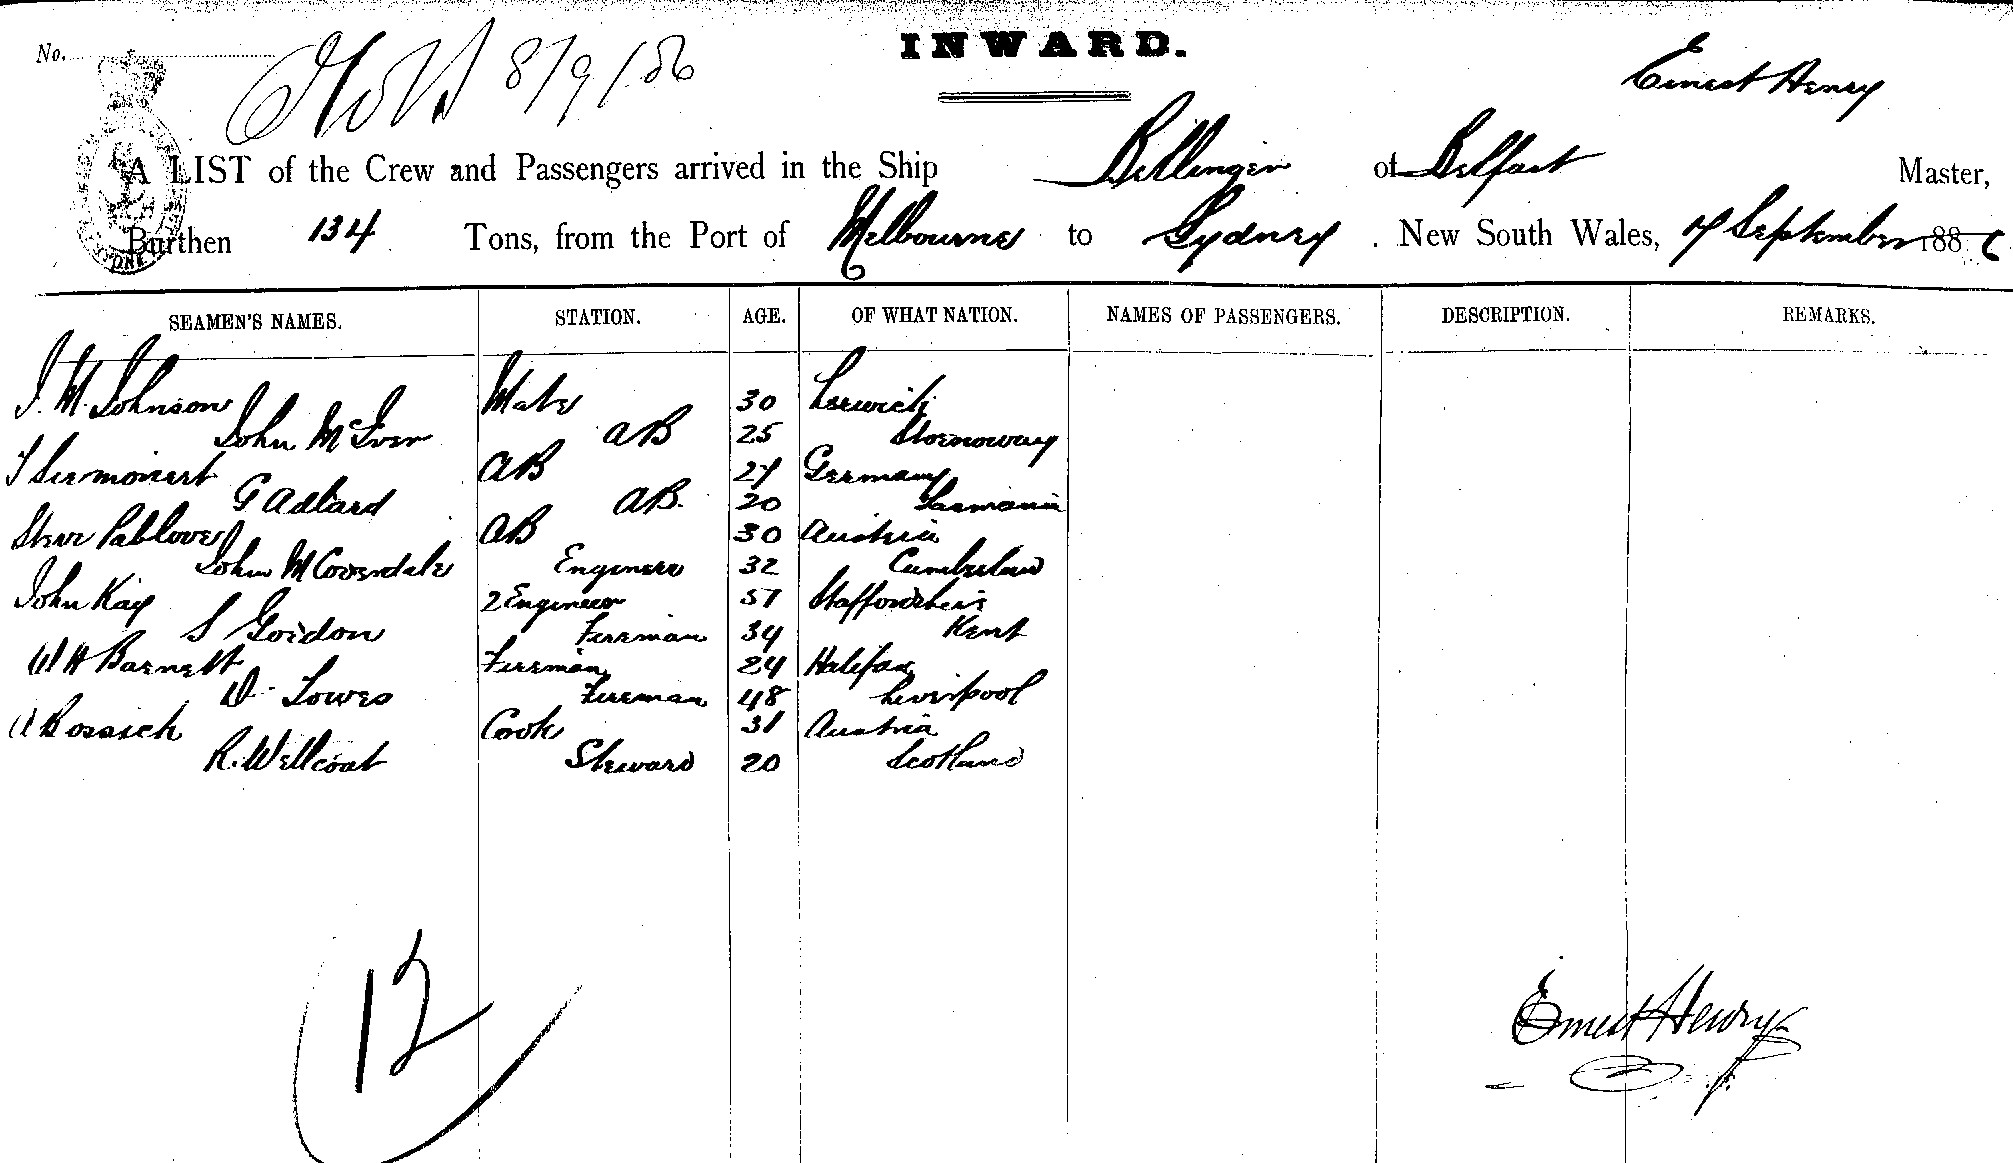 INWARD.
No. 8/9/86
Ernest Henry
A LIST of the Crew and Passengers arrived in the Ship Bellinger of Belfast Master,
Burthen 134 Tons, from the Port of Melbourne to Sydney . New South Wales, 7 September 1886
SEAMEN'S NAMES. STATION. AGE. OF WHAT NATION. NAMES OF PASSENGERS. DESCRIPTION. REMARKS.
J. M. Johnson Mate 30 Lerwick
John McIver AB 25 Stornoway
AB 27 Germany
G Adlard AB. 20 Tasmania
Steve Pablove AB 30 Austria
John M Coverdale Engineer 32 Cumberland
John Kay 2 Engineer 57
S Gordon Fireman 34 Kent
W H Barnett Fireman 24 Halifax
D. Lowes Fireman 48 Liverpool
Cook 31 Austria
R. Wellcoat Steward 20 Scotland
12
Ernest Henry